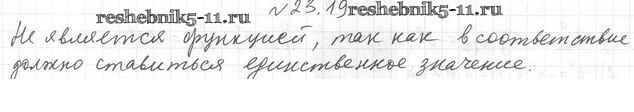 reshebnik5-11.ru №23.19 reshebnik5-11.ru
Не является функцией, так как в соответствие
должно ставиться единственное значение.